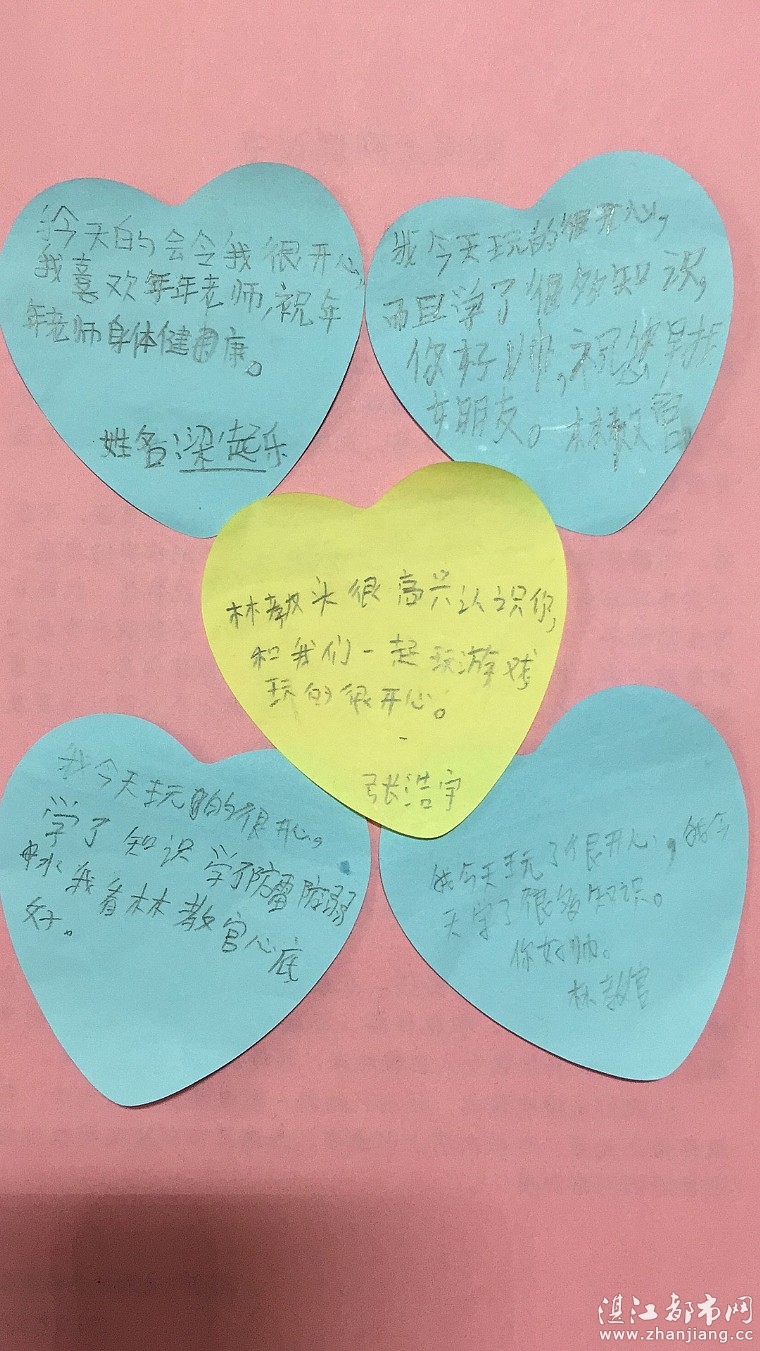 今天的会令我很开心,
我喜欢年年老师,祝年
年老师身体健康。
姓名:梁起乐
我今天玩的很开心,
而且净了很多知识,
你好帅,祝您早找
女朋友。林教官
林教头很高兴认识你,
和我们一起玩游戏
玩的很开心。
张浩宇
我今天玩的很开心,
学了知识学了防雷防溺
水我看林教官心底
好。
我今天玩了很开心,我今
天学了很多知识。
你好帅。
林教官
湛江都市网
www.zhanjiang.cc